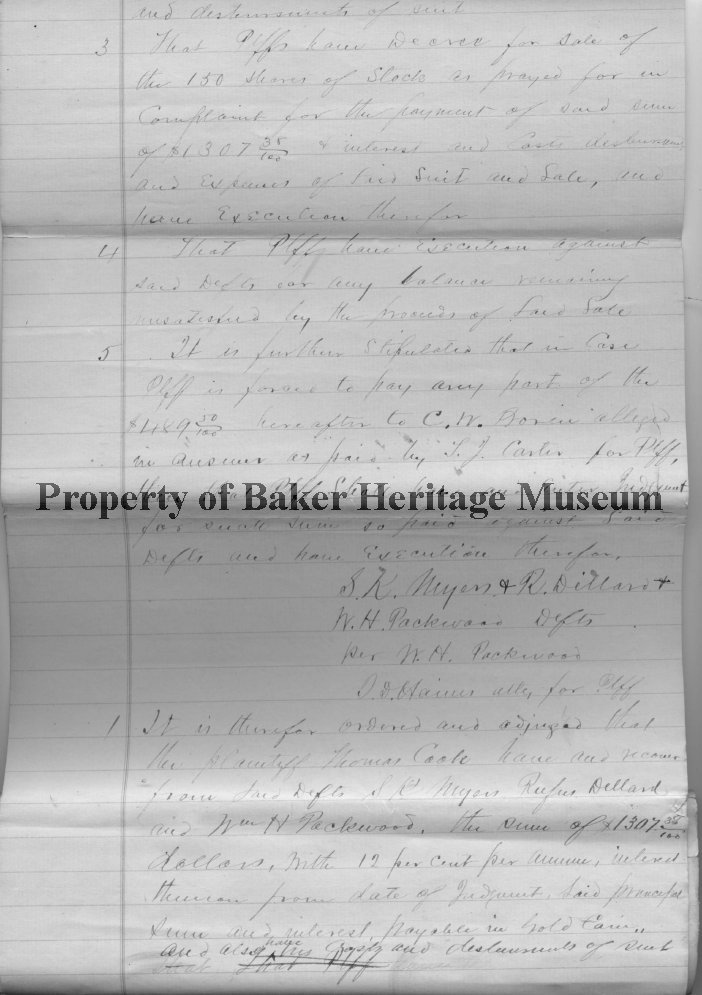 and disbursments of suit
3 That Plffs have Decree for sale of
the 150 shares of Stock as prayed for in
Complaint for the payment of said sum
of $1307 35/100 & interest and Costs disbursmts
and Expenses of said Suit and Sale, and
have Execution therefor
4 That Plffs have Execution against
said Defts for any balance remaining
unsatisfied by the proceeds of said Sale
5 It is further Stipulated that in Case
Plff is forced to pay any part of the
$489 50/100 hereafter to C. W. alleged
in answer as paid by T. J. Carter for Plff,
Property of Baker Heritage Museum
Plff Judgment
for such sum so paid against said
Defts and have Execution therefor.
S. K. Myers & R. Dillard +
W. H. Packwood Defts
per W. H. Packwood
I. D. Haines atty for Plff
1 It is therefor ordered and adjuged that
the plaintiff Thomas Cook have and recover
from said Defts S K Myers Rufus Dellard
and Wm H Packwood, the sum of $1307 35/100
dollars, with 12 per cent per annum, interest
thereon from date of Judgment, said principal
sum and interest, payable in Gold Coin,
and also have his Costs and disbursments of suit
that Plff